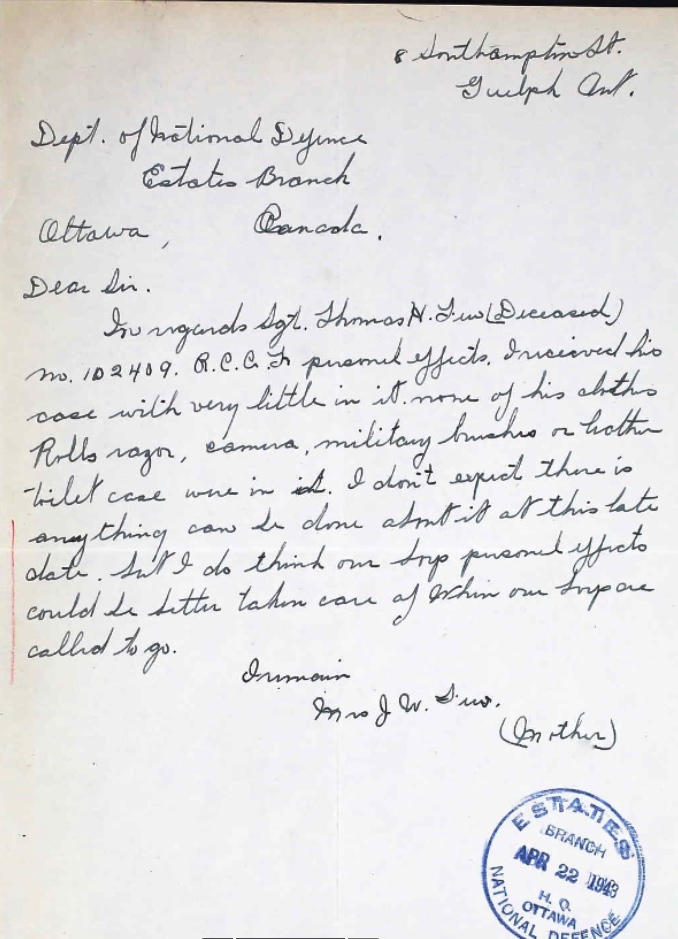 8 Southampton St.
Guelph Ont.
Dept. of National Defence
Estates Branch
Ottawa, Canada.
Dear Sir.
In regards Sgt. Thomas H. Tew (Deceased)
No. 102409. R.C.A.F. personel effects. I recieved his
case with very little in it. none of his clothes
Rolls razor, camera, military brushes or leather
toilet case were in it. I don't expect there is
anything can be done about it at this late
date. but I do think our boys personel effects
could be better taken care of when our boys are
called to go.
I remain
Mrs J. W. Tew.
(Mother)
ESTATES
BRANCH
APR 22 1943
H. Q.
OTTAWA
NATIONAL DEFENCE